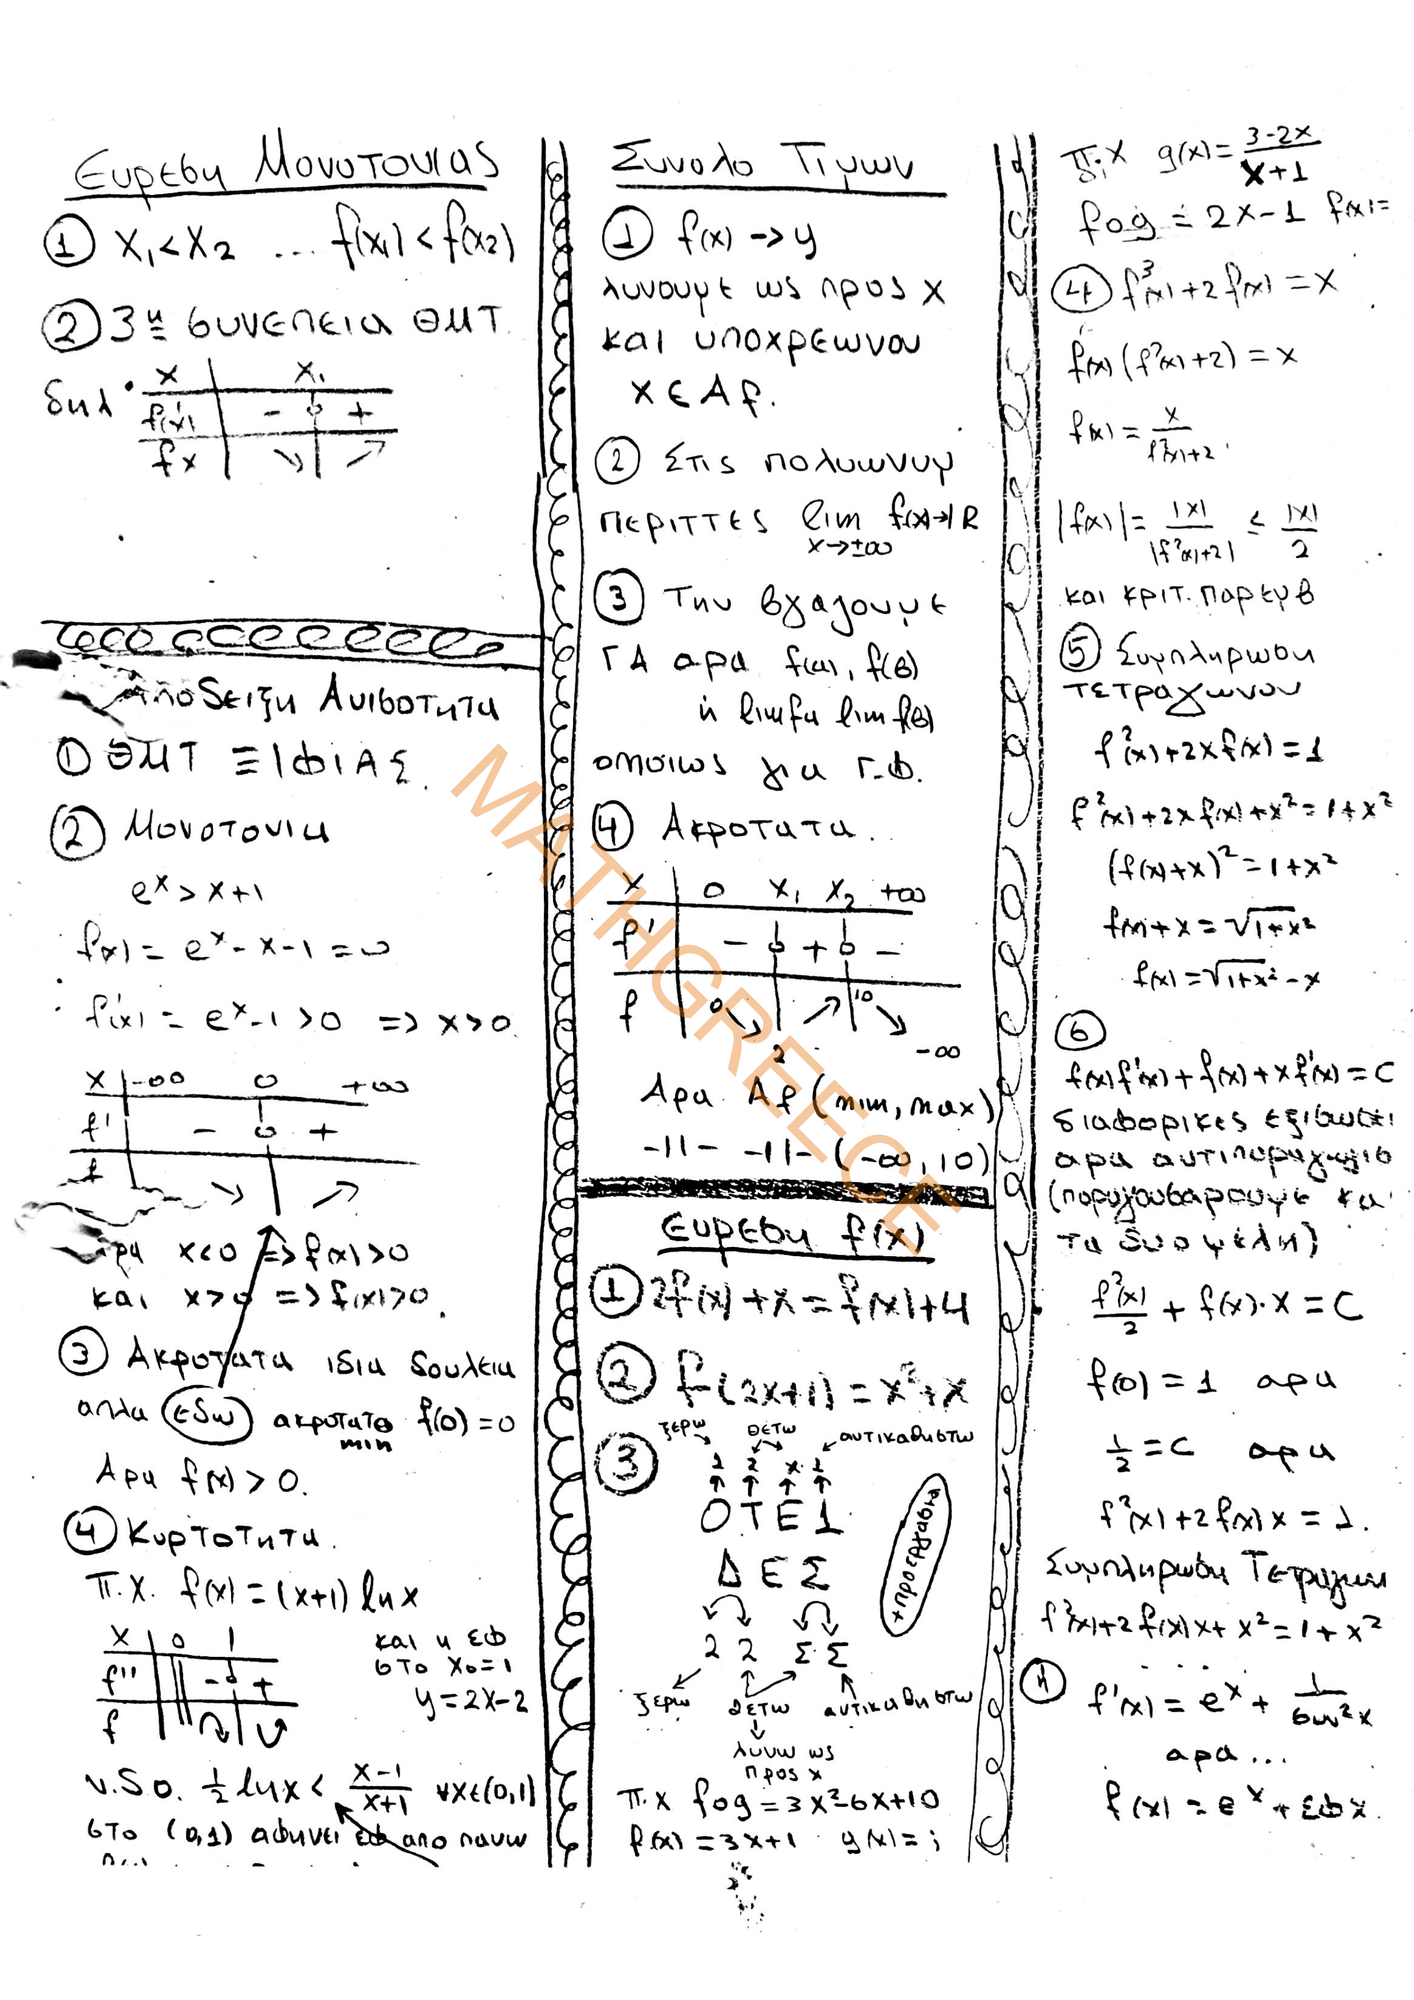 Ευρεση Μονοτονιας
① x₁<x₂ ... f(x₁)<f(x₂)
② 3η συνεπεια ΘΜΤ
δηλ. x | x₁
f'(x) | - 0 +
fx | ↘ ↗
Αποδειξη Ανισοτητα
① ΘΜΤ Ξ Ι Φ Ι Α Σ
② Μονοτονια
eˣ > x+1
f(x) = eˣ-x-1 = 0
f'(x) = eˣ-1 >0 => x>0
x | -∞ 0 +∞
f' | - 0 +
f | ↘ ↗
αρα x<0 => f(x)>0
και x>0 => f(x)>0
③ Ακροτατα ιδια δουλεια
απλα εδω ακροτατο f(0)=0
min
Αρα f(x) > 0.
④ Κυρτοτητα.
π.χ. f(x) = (x+1) ln x
x | 0 1
f'' | - 0 +
f
και η εφ
στο x₀=1
y=2x-2
ν.δ.ο. ½ lnx < (x-1)/(x+1) ∀x∈(0,1)
στο (0,1) αφηνει εφ απο πανω
Συνολο Τιμων
① f(x) -> y
λυνουμε ως προς x
και υποχρεωνου
x ∈ Af.
② Στις πολυωνυμ
περιττες lim f(x)→IR
x→±∞
③ Την βγαζουμε
ΓΑ αρα f(α), f(β)
ή limfα limf(β)
ομοιως για Γ.Φ.
④ Ακροτατα..
x | 0 x₁ x₂ +∞
f' | - 0 + 0 -
f | 0 ↘ ↗ 10 ↘
2 -∞
Αρα Af (min, max)
-11- -11- (-∞, 10)
Ευρεση f(x)
① 2f(x)+x = f(x)+4
② f(2x+1) = x²+x
ξερω θετω αντικαθιστω
③ 2 2 x 1
↑ ↑ ↑ ↑
Ο Τ Ε 1
+προεργασια
Δ Ε Σ
2 2 Σ Σ
ξερω θετω αντικαθιστω
↓
λυνω ως
προς x
π.χ fog = 3x²-6x+10
f(x) = 3x+1 g(x)= ;
π.χ g(x) = (3-2x)/(x+1)
fog = 2x-1 f(x)=
④ f³(x)+2f(x) = x
f(x)(f²(x)+2) = x
f(x) = x/(f²(x)+2).
|f(x)| = |x|/|f²(x)+2| ≤ |x|/2
και κριτ. παρεμβ
⑤ Συμπληρωση
τετραγωνου
f²(x)+2xf(x)=1
f²(x)+2xf(x)+x²=1+x²
(f(x)+x)²=1+x²
f(x)+x=√1+x²
f(x)=√1+x²-x
⑥
f(x)f'(x)+f(x)+xf'(x)=C
διαφορικες εξισωσει
αρα αντιπαραγωγισ
(παραγουσαρουμε κα
τα δυο μελη)
f²(x)/2 + f(x)·x = C
f(0) = 1 αρα
½ = C αρα
f²(x)+2f(x)x = 1.
Συμπληρωση Τετραγων
f²(x)+2f(x)x+x²=1+x²
f'(x) = eˣ + 1/συν²x
αρα...
f(x) = eˣ + εφx.
MATHGREECE